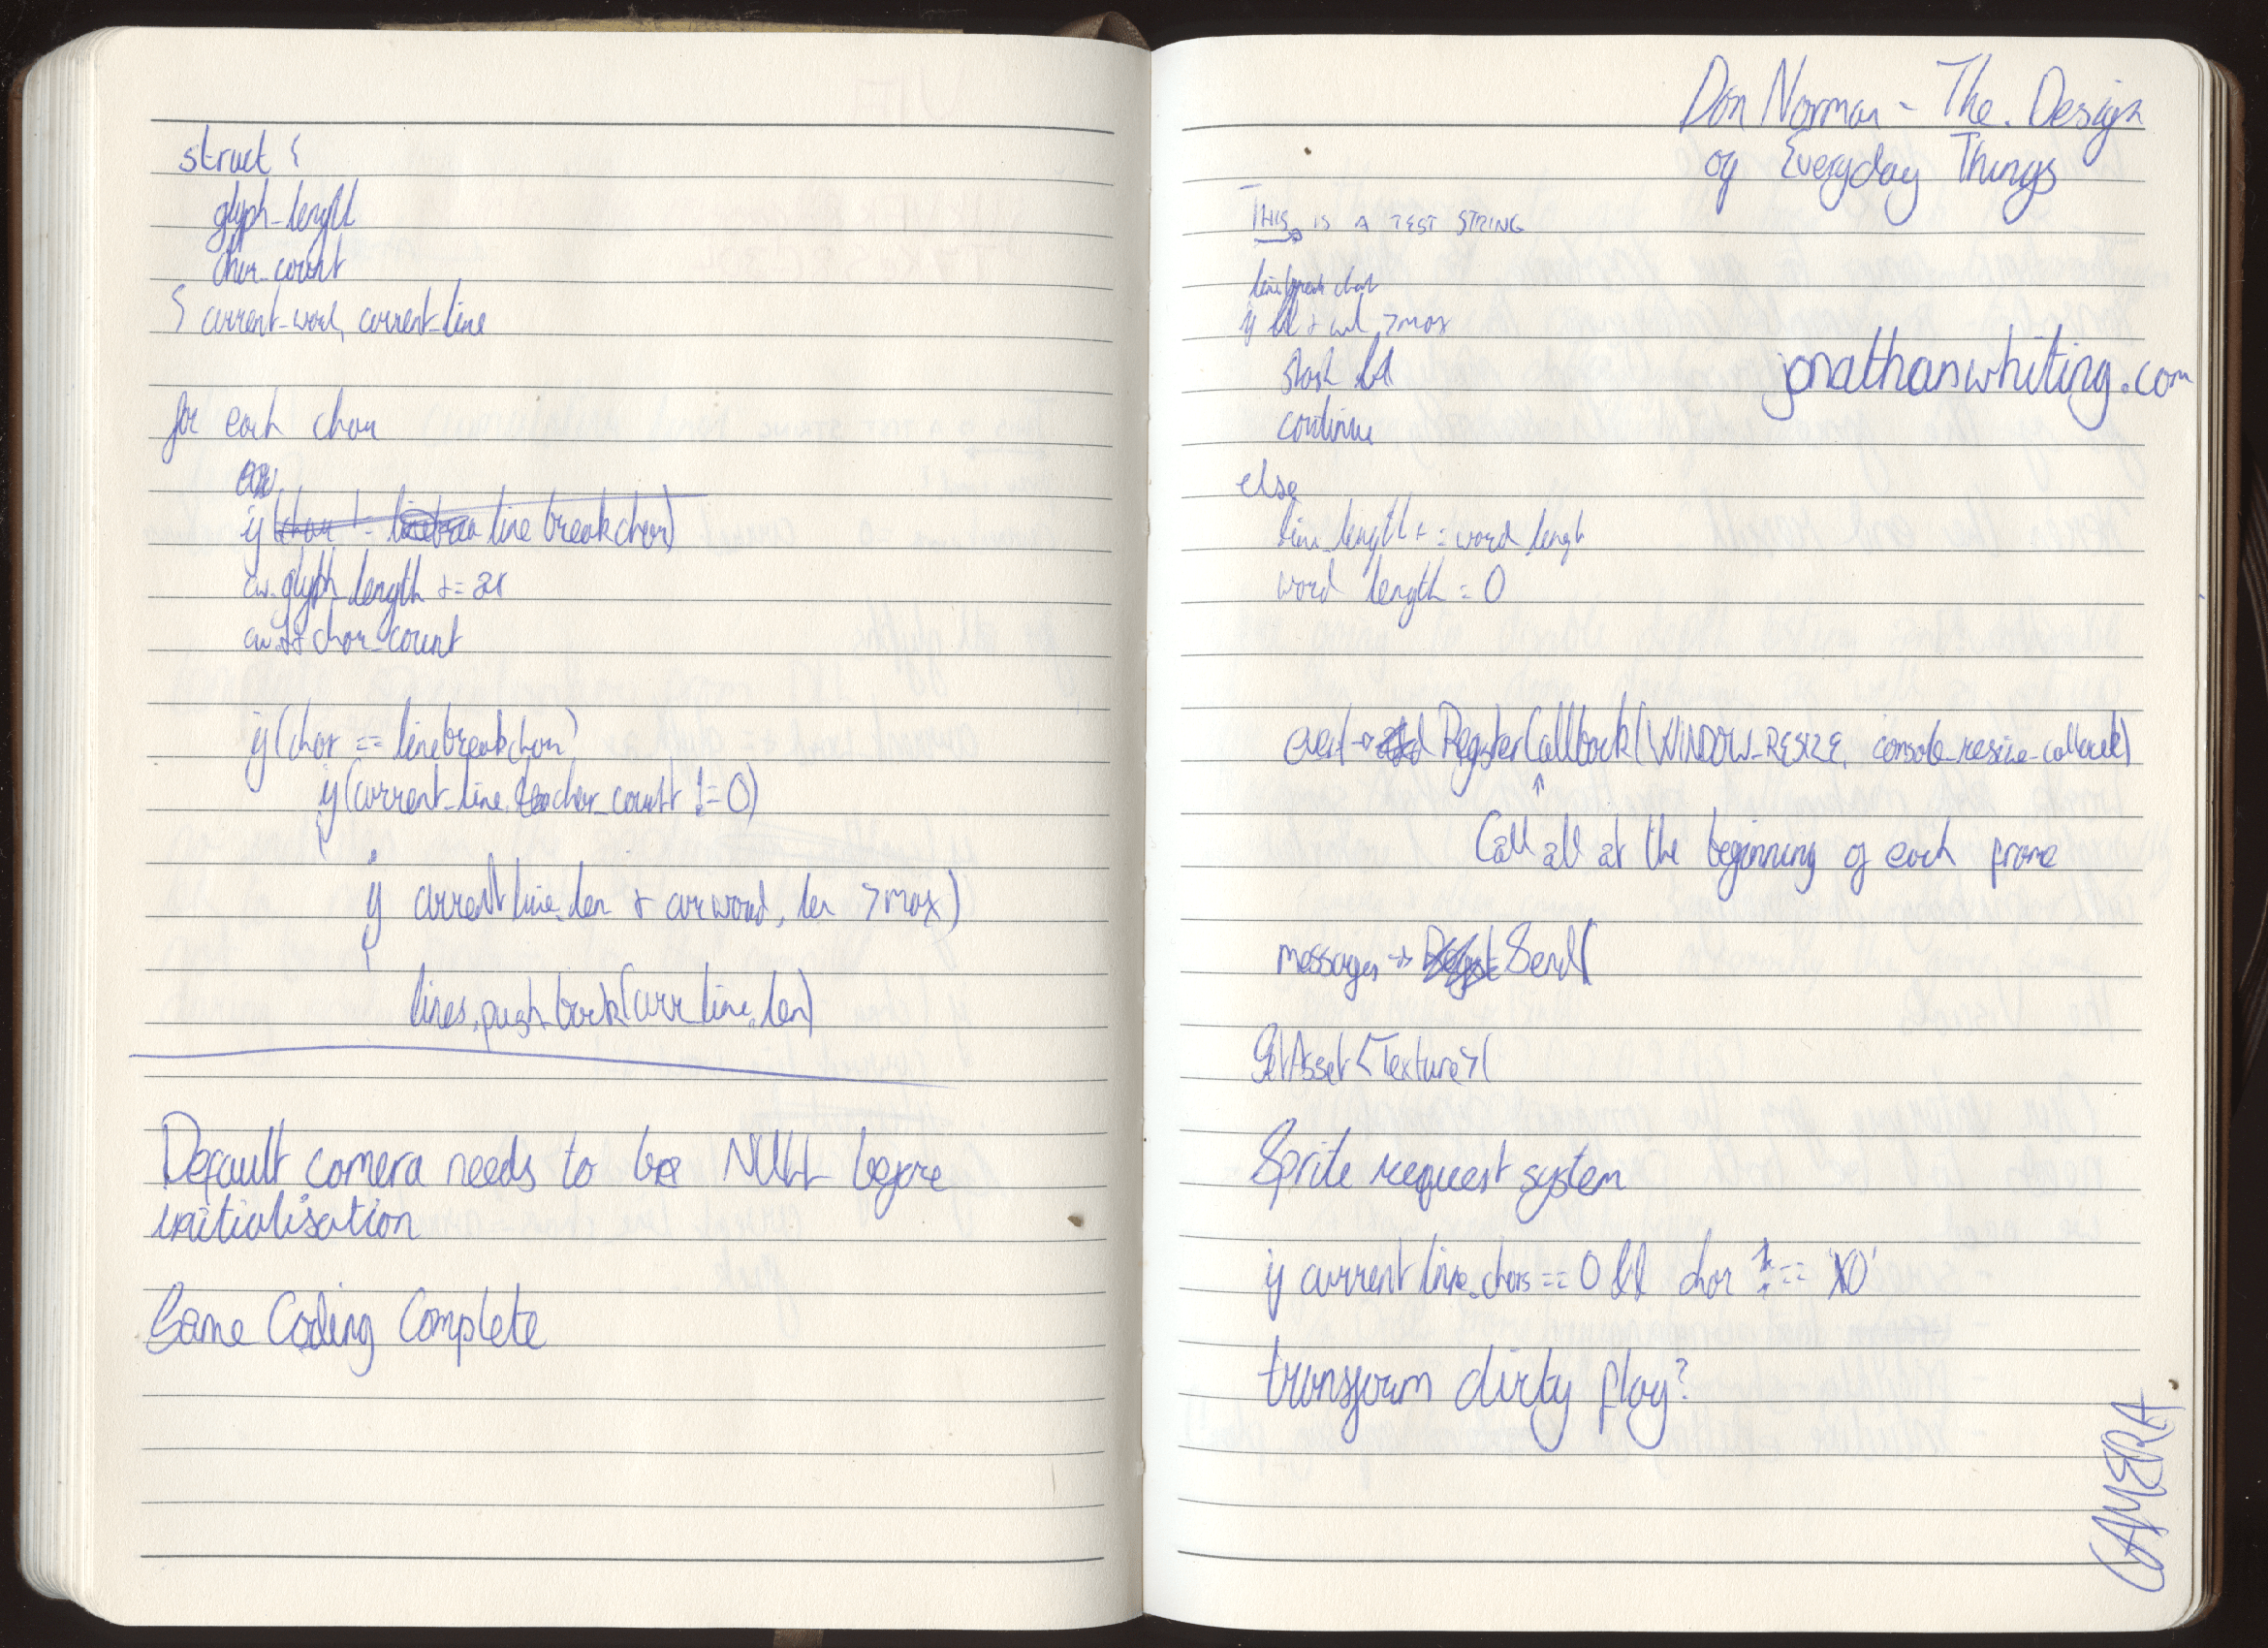 struct {
glyph_length
char_count
} current_word, current_line
for each char
if (char != linebrea line breakchar)
cw.glyph_length += 
cw.++ char_count
if (char == linebreakchar)
if (current_line. char_count != 0)
{
if current line.len + curword.len > max)
{
lines.push_back(curr line.len)
Default camera needs to be NULL before
initialisation
Game Coding Complete
Don Norman - The Design
of Everyday Things
THIS IS A TEST STRING
linebreak char
if ll + wl > max
stash ll
continue
jonathanwhiting.com
else
line_length += word length
word length = 0
event → RegisterCallback(WINDOW_RESIZE, console_resize_callback)
↑
Call all at the beginning of each frame
messages → Send(
GetAsset<Texture>(
Sprite request system
if current line.chars == 0 && char != '\0'
transform dirty flag?
CAMERA